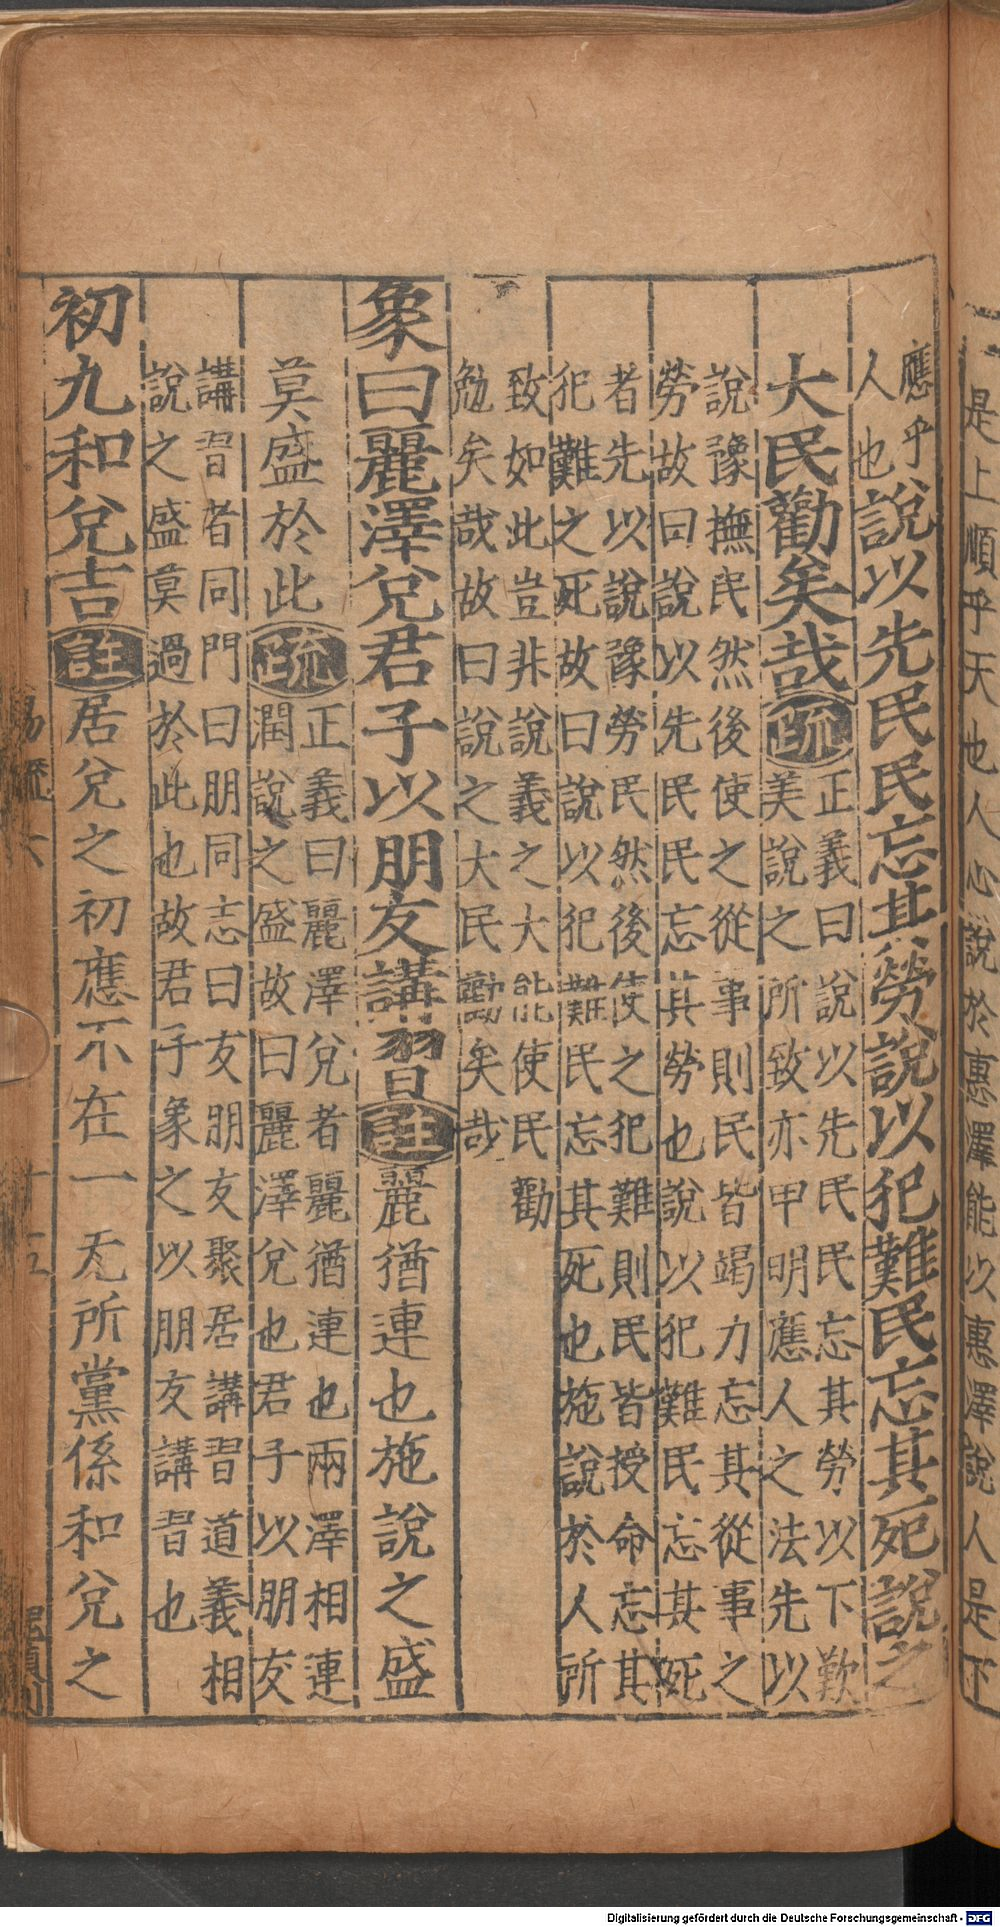 是上順乎天也人心說於惠澤能以惠澤說人是下
應乎
人也說以先民民忘其勞說以犯難民忘其死說之
大民勸矣哉疏正義曰說以先民民忘其勞以下歎
美說之所致亦申明應人之法先以
說豫撫民然後使之從事則民皆竭力忘其從事之
勞故曰說以先民民忘其勞也說以犯難民忘其死
者先以說豫勞民然後使之犯難則民皆授命忘其
犯難之死故曰說以犯難民忘其死也施說於人所
致如此豈非說義之大能使民勸
勉矣哉故曰說之大民勸矣哉
象曰麗澤兌君子以朋友講習註麗猶連也施說之盛
莫盛於此疏正義曰麗澤兌者麗猶連也兩澤相連
潤說之盛故曰麗澤兌也君子以朋友
講習者同門曰朋同志曰友朋友聚居講習道義相
說之盛莫過於此也故君子象之以朋友講習也
初九和兌吉註居兌之初應不在一无所黨係和兌之
易 六 十五
Digitalisierung gefördert durch die Deutsche Forschungsgemeinschaft - DFG